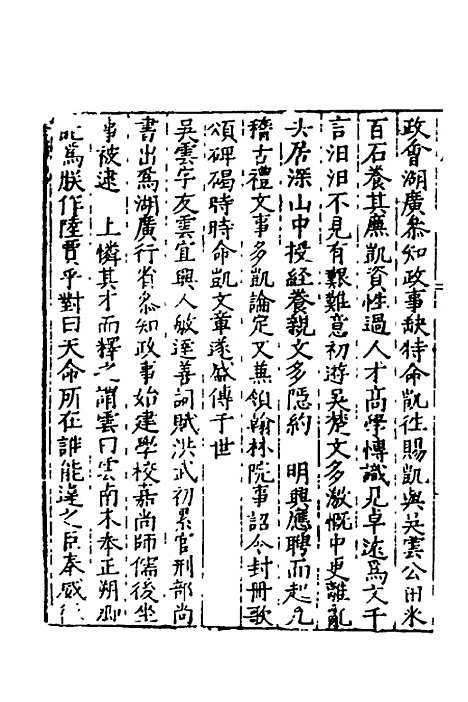 政會湖廣叅知政事缺特命凱徃賜凱與吴雲公田米
百石養其廉凱資性過人才高學博識見卓遠爲文千
言汨汨不見有艱難意初遊吴楚文多激慨中更離亂
居深山中授經養親文多隱約　明興應聘而起凡
稽古禮文事多凱論定又兼領翰林院事詔令封册歌
頌碑碣時時命凱文章遂盛傳于世
吴雲字友雲宜興人敏逹善詞賦洪武初累官刑部尚
書出爲湖廣行省叅知政事始建學校嘉尚師儒後坐
事被逮　上憐其才而釋之謂雲曰雲南未奉正朔卿
能爲朕作陸賈乎對曰天命所在誰能違之臣奉威